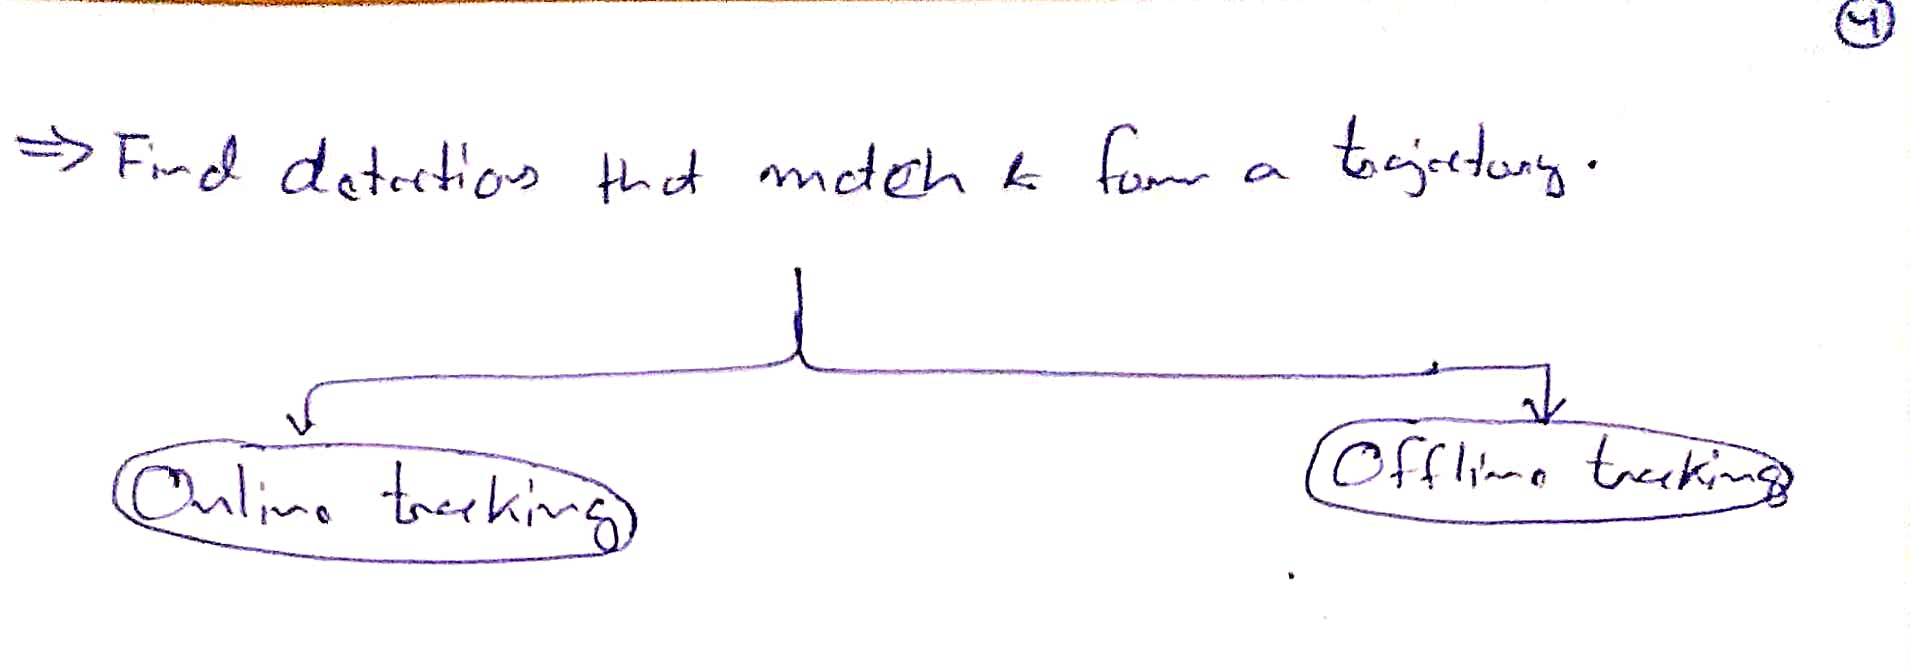 4
⇒ Find detections that match & form a trajectory.
Online tracking
Offline tracking